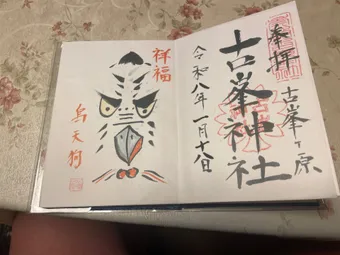 奉拝
古峯ヶ原
古峯神社
令和八年一月十八日
祥福
烏天狗